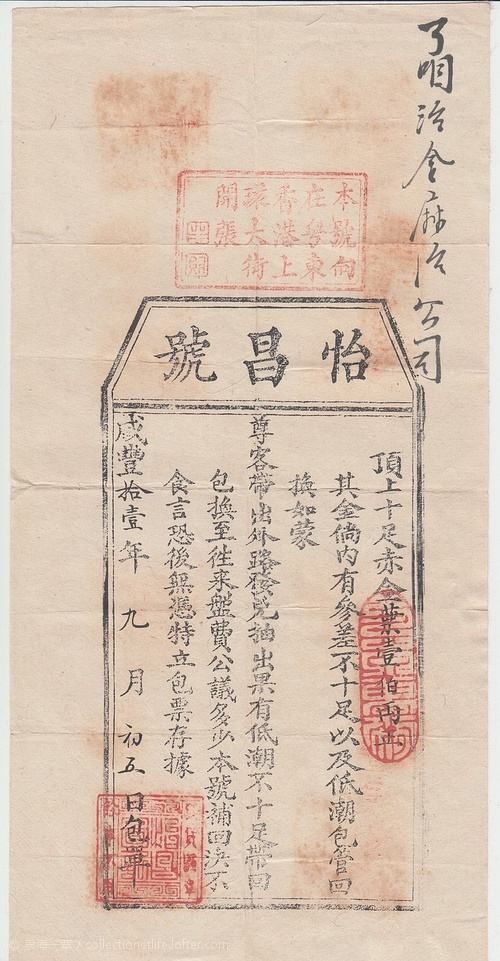 治仝麻治公司
本號向
在粵東
香港上
環大街
開張
怡昌號
頂上十足赤金葉壹伯兩正
其金倘內有參差不十足以及低潮包管回
換如蒙
尊客帶出外路發兌抽出果有低潮不十足帶回
包換至往來盤費公議多少本號補回決不
食言恐後無憑特立包票存據
咸豐拾壹年九月初五日包單